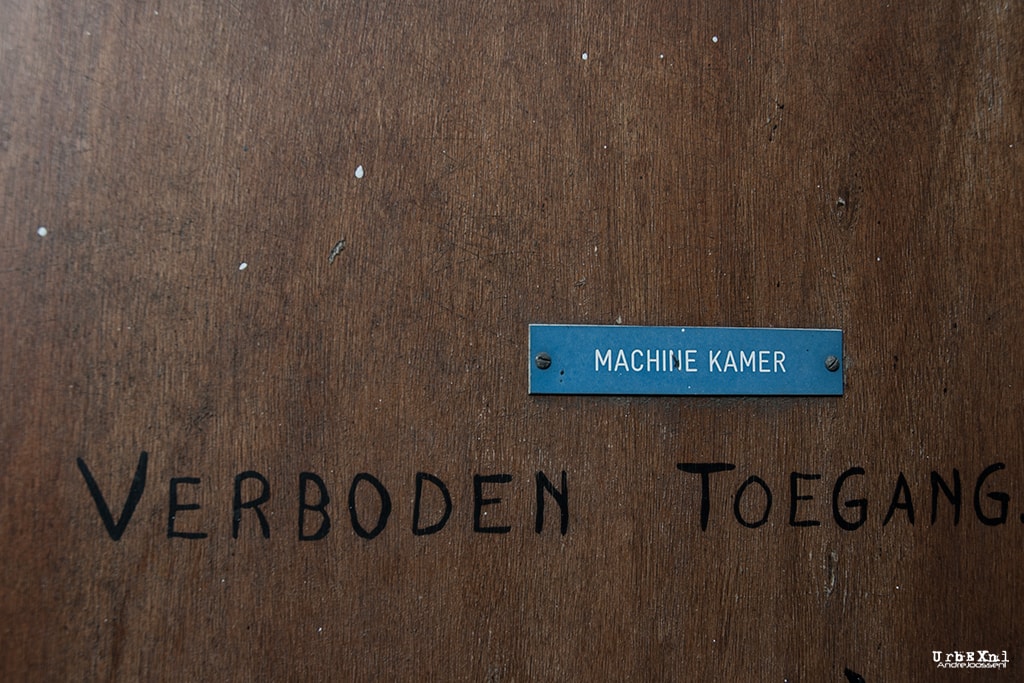 MACHINE KAMER
VERBODEN TOEGANG.
UrbEXnl
AndreJoosse.nl